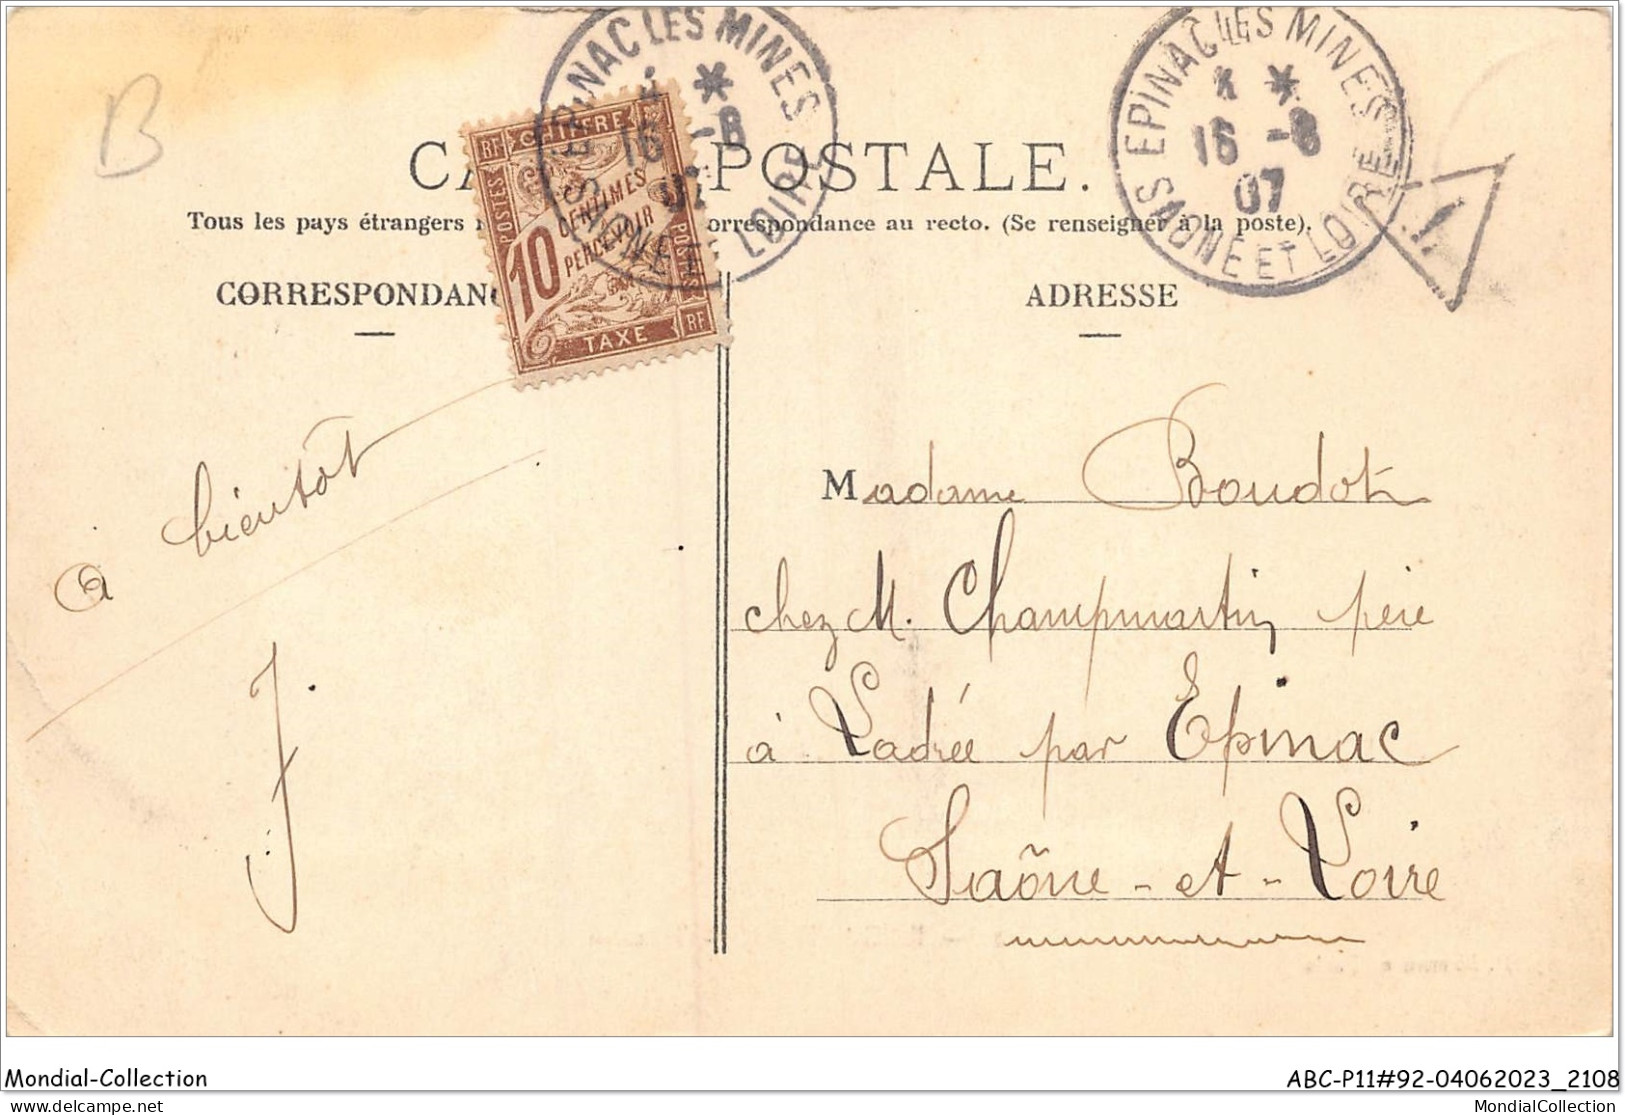 B
CARTE POSTALE.
EPINAC LES MINES
16 -8
07
SAONE ET LOIRE
EPINAC LES MINES
16 -8
07
SAONE ET LOIRE
RF CHIFFRE
POSTES
10
CENTIMES
PERCEVOIR
POSTES
TAXE RF
Tous les pays étrangers orrespondance au recto. (Se renseigner à la poste).
CORRESPONDANC
ADRESSE
à bientôt
J.
Madame Boudot
chez M. Champmartin père
à Ladrée par Epinac
Saône-et-Loire
Mondial-Collection
ABC-P11#92-04062023_2108
delcampe.net
MondialCollection